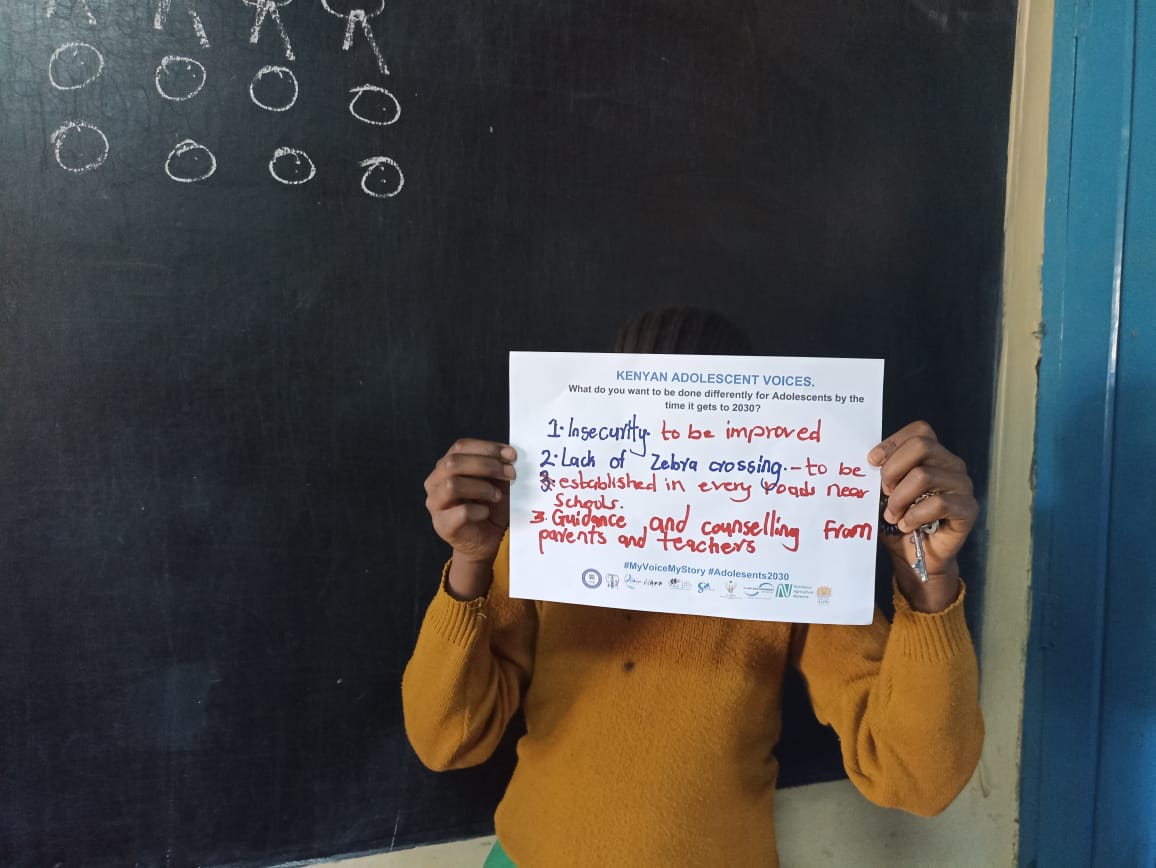 KENYAN ADOLESCENT VOICES.
What do you want to be done differently for Adolescents by the
time it gets to 2030?
1. Insecurity to be improved
2. Lack of Zebra crossing. - to be
established in every roads near
Schools.
3. Guidance and counselling from
parents and teachers
#MyVoiceMyStory #Adolesents2030